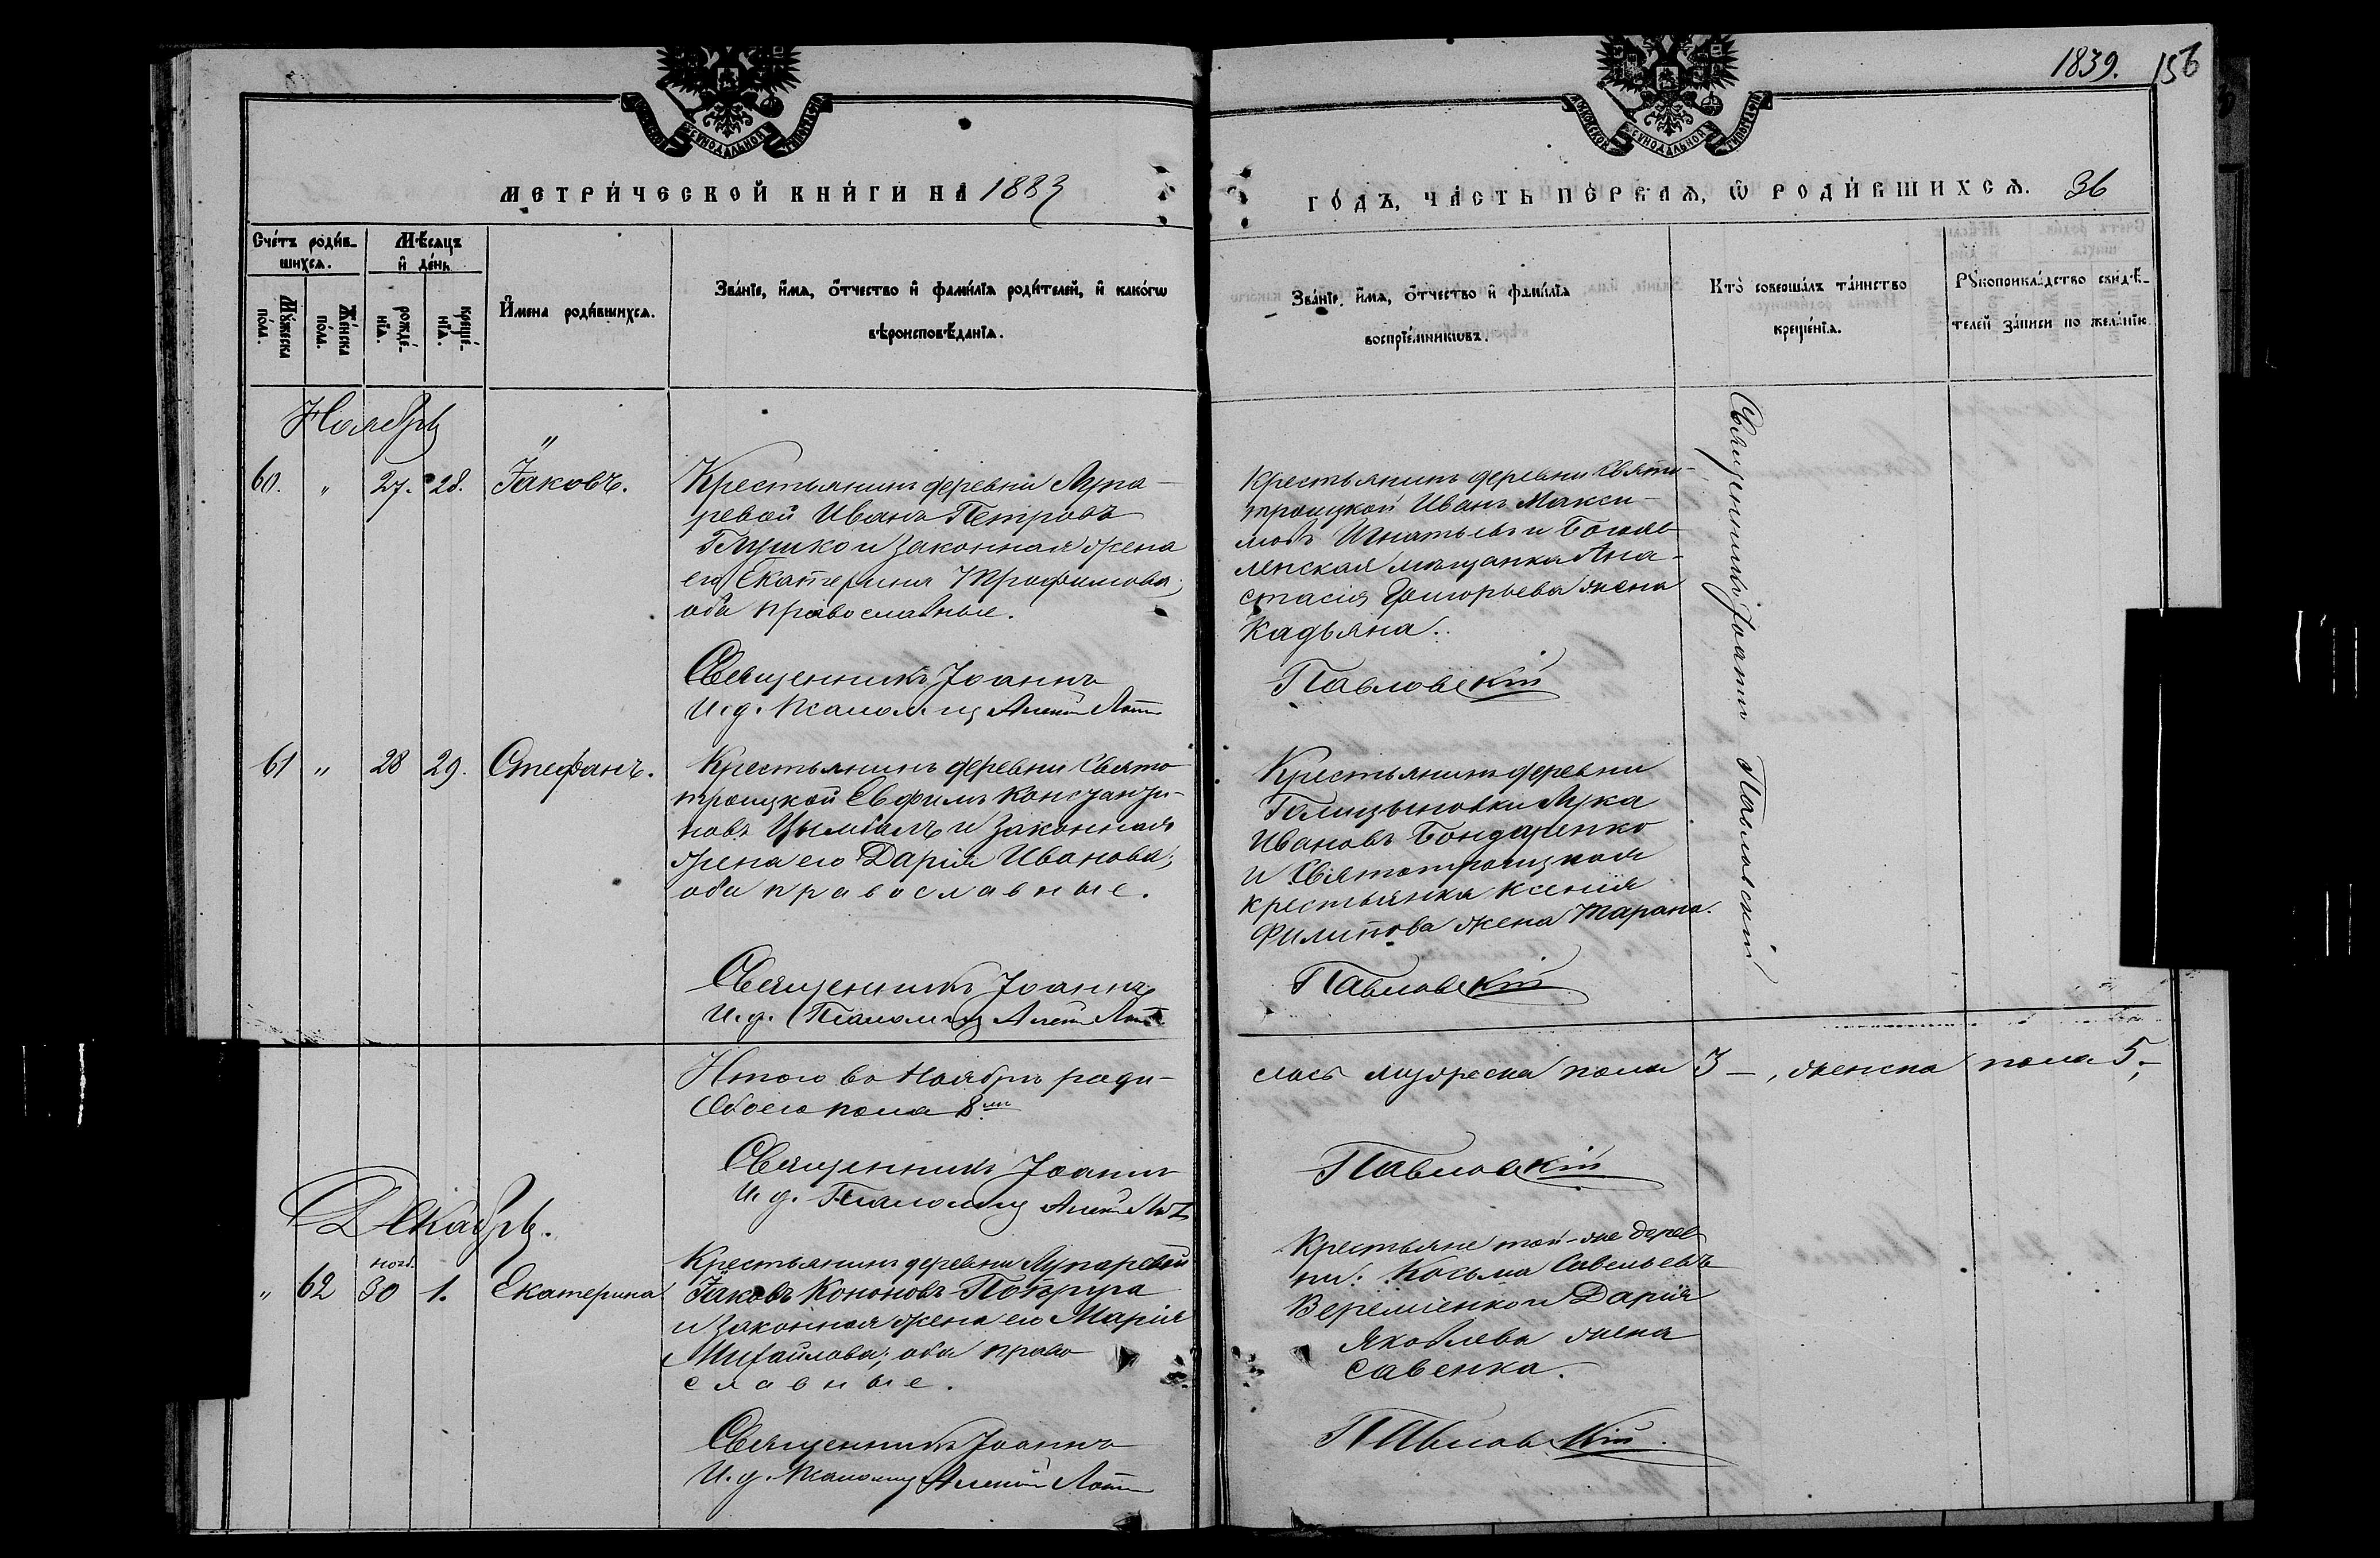 1839. 156
МОСКОВСКОЙ СУНОДАЛЬНОЙ ТИПОГРАФІИ
МОСКОВСКОЙ СУНОДАЛЬНОЙ ТИПОГРАФІИ
МЕТРИ́ЧЕСКОЙ КНИ́ГИ НА 1883
ГО́ДЪ, ЧА́СТЬ ПЕ́РВАѦ, Ѡ РОДИ́ВШИХСѦ. 36
Сче́тъ роди́в-
шихсѧ.
Мѣ́сѧцъ
и҆ де́нь
Мꙋ́жеска
по́ла.
Же́нска
по́ла.
рожде́-
нїѧ.
креще́-
нїѧ.
И҆мена роди́вшихсѧ.
Зва́нїе, и҆́мѧ, ѻ҆́тчество и҆ фами́лїѧ роди́телей, и҆ како́гѡ
вѣроисповѣ́данїѧ.
Зва́нїе, и҆́мѧ, ѻ҆́тчество и҆ фами́лїѧ
воспрїе́мникѡвъ.
Кто̀ соверша́лъ та́инство
креще́нїѧ.
Рꙋкоприкла́дство свидѣ́-
телей за́писи по жела́нїю.
Ноябрь
60. " 27. 28. Іаковъ.
Крестьянинъ деревни Лупа-
ревой Иванъ Петровъ
Глушко и законная жена
его Екатерина Трофимова;
оба православные.
Священникъ Іоаннъ
И. д. Псаломщ
Крестьянинъ деревни Свято-
троицкой Иванъ Макси-
мовъ Игнатьевъ и Богояв-
ленская мѣщанка Ана-
стасія Григорьева жена
Кадьяна.
Павловскій
Священникъ Іоаннъ Павловскій
61 " 28 29. Стефанъ.
Крестьянинъ деревни Свято
троицкой Евфимъ Константи-
новъ Цымбалъ и законная
жена его Дарія Иванова;
оба православные.
Священникъ Іоаннъ
И. д. Псаломщ
Крестьянинъ деревни
Голицыновки Лука
Ивановъ Бондаренко
и Святотроицкая
крестьянка Ксенія
Филипова жена Тарана.
Павловскій
Итого въ Ноябрѣ роди-
лось мужеска пола 3 –, женска пола 5,–
Обоего пола 8.ми
Священникъ Іоаннъ
И. д. Псаломщ
Павловскій
Декабрь.
нояб.
" 62 30 1. Екатерина
Крестьянинъ деревни Лупаревой
Іаковъ Кононовъ
и законная жена его Марія
Михайлова; оба право
славные.
Священникъ Іоаннъ
И. д. Псаломщ
Крестьяне той-же дерев
ни: Косьма Савельевъ
Веремiенко и Дарія
Яковлева жена
Савенка.
Павловскій.